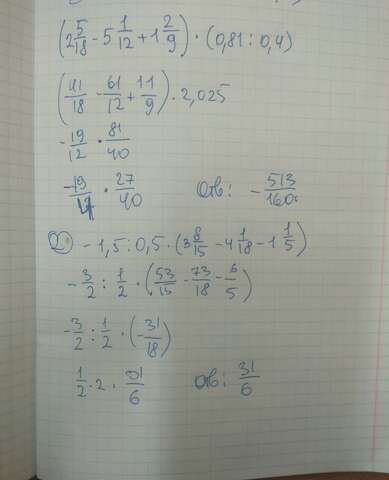 (2 5/18 - 5 1/12 + 1 2/9) · (0,81 : 0,4)
(41/18 - 61/12 + 11/9) · 2,025
- 19/12 · 81/40
- 19/4 · 27/40 Отв: - 513/160
2) - 1,5 : 0,5 · (3 8/15 - 4 1/18 - 1 1/5)
- 3/2 : 1/2 · (53/15 - 73/18 - 6/5)
- 3/2 : 1/2 · (- 31/18)
1/2 · 2 · 31/6 Отв: 31/6